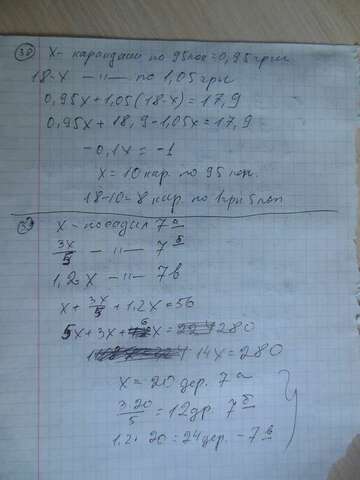 38 х - карандаши по 95 коп = 0,95 грн
18-х — " — по 1,05 грн
0,95х + 1,05(18-х) = 17,9
0,95х + 18,9 - 1,05х = 17,9
-0,1х = -1
х = 10 кар. по 95 коп.
18-10 = 8 кар. по 1 грн 5 коп
х - посадил 7 а
3х/5 — " — 7 б
1,2х — " — 7 в
х + 3х/5 + 1,2х = 56
5х + 3х + 6х = 280
14х = 280
х = 20 дер. 7 а
3·20/5 = 12 др. 7 б
1,2 · 20 = 24 дер. - 7 в